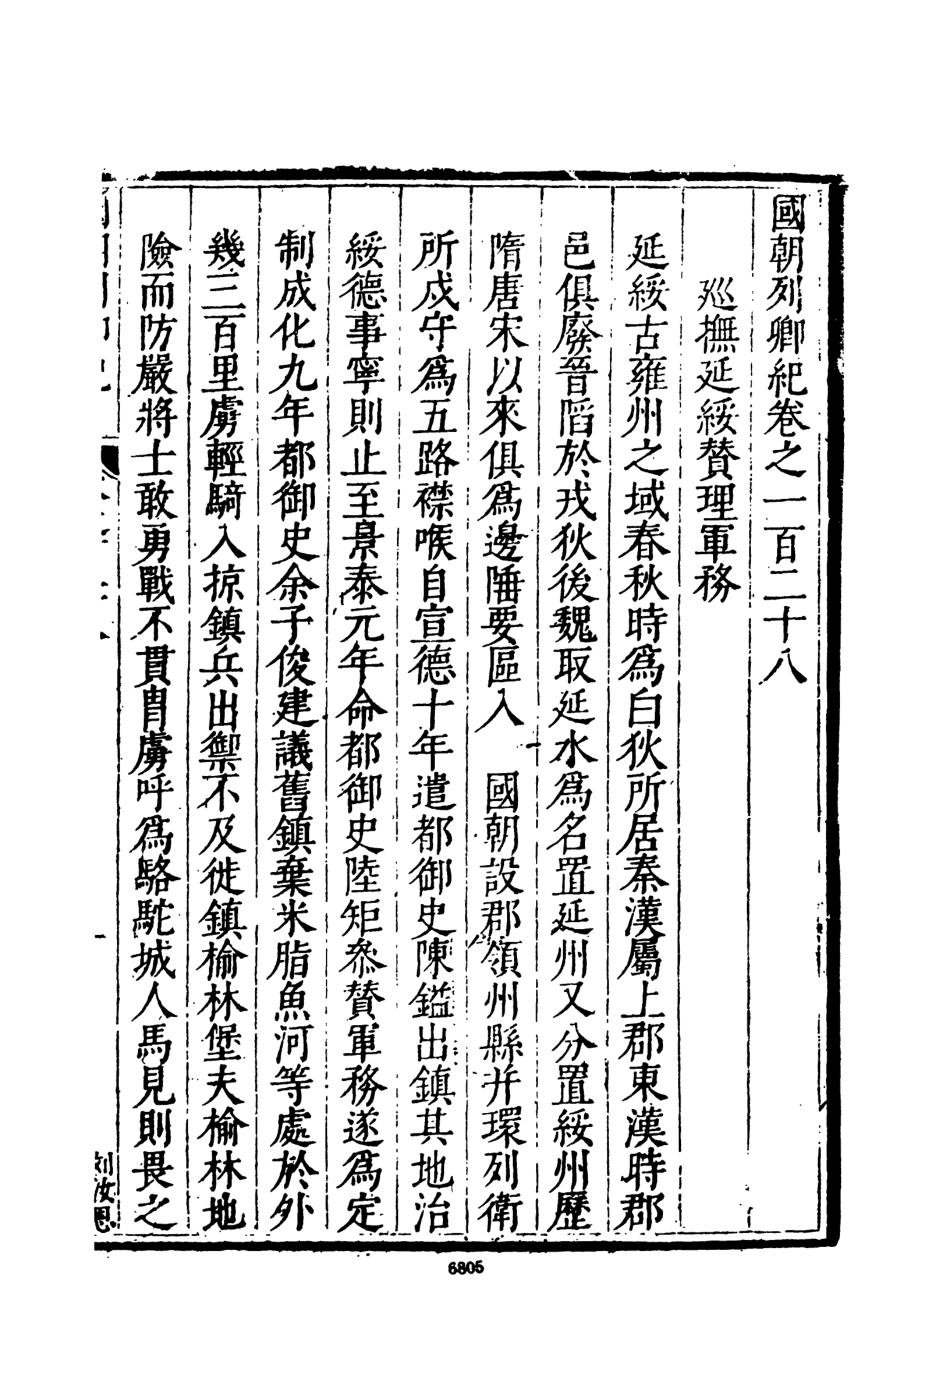 國朝列卿紀卷之一百二十八
廵撫延綏賛理軍務
延綏古雍州之域春秋時爲白狄所居秦漢屬上郡東漢時郡
邑俱廢晉䧟於戎狄後魏取延水爲名置延州又分置綏州歷
隋唐宋以來俱爲邊陲要區入　國朝設郡領州縣并環列衛
所戍守爲五路襟喉自宣德十年遣都御史陳鎰出鎮其地治
綏德事寧則止至景泰元年命都御史陸矩叅賛軍務遂爲定
制成化九年都御史余子俊建議舊鎮棄米脂魚河等處於外
幾三百里虜輕騎入掠鎮兵出禦不及徙鎮榆林堡夫榆林地
險而防嚴將士敢勇戰不貫胄虜呼爲駱駝城人馬見則畏之
6805